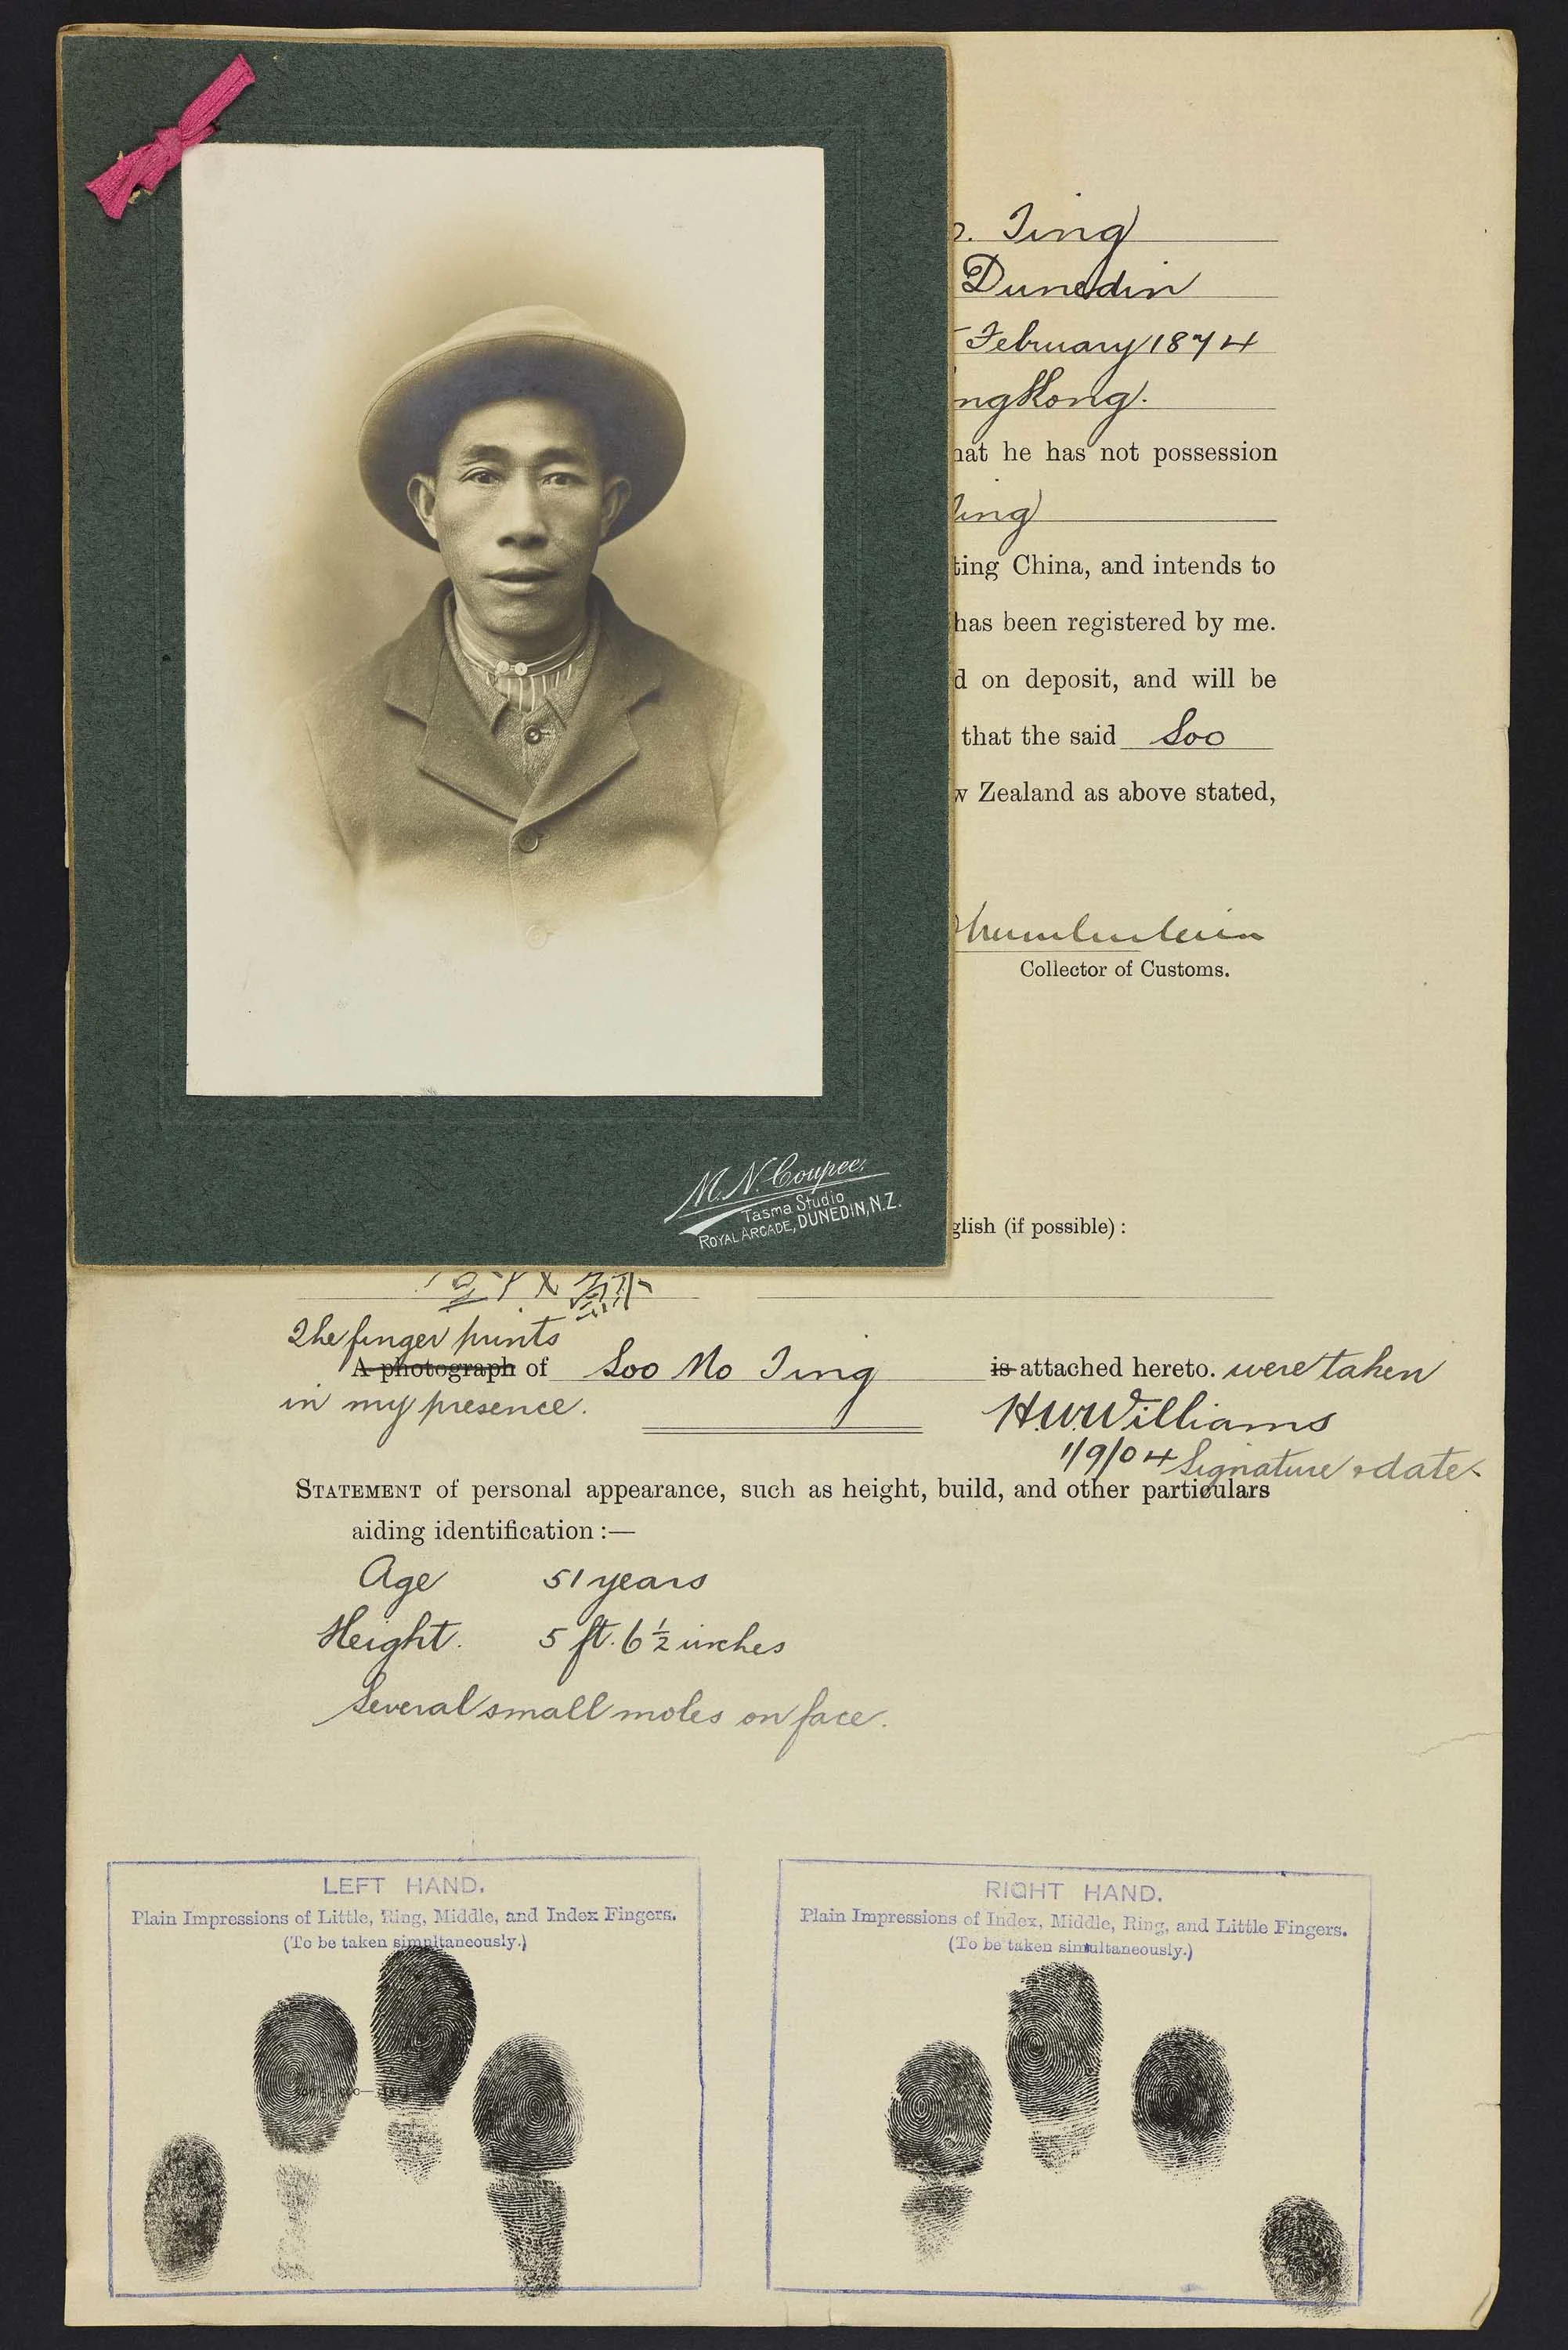 Ting
Dunedin
February 1874
ngKong.
hat he has not possession
Ting
ting China, and intends to
has been registered by me.
d on deposit, and will be
that the said Soo
w Zealand as above stated,
Collector of Customs.
M. N. Coupee,
Tasma Studio
ROYAL ARCADE, DUNEDIN, N.Z.
glish (if possible) :
The finger prints
A photograph of Soo No Ting is attached hereto. were taken
in my presence.
H.W. Williams
1/9/04 Signature & date
STATEMENT of personal appearance, such as height, build, and other particulars
aiding identification :—
Age 51 years
Height. 5 ft. 6 ½ inches
Several small moles on face.
LEFT HAND.
Plain Impressions of Little, Ring, Middle, and Index Fingers.
(To be taken simultaneously.)
RIGHT HAND.
Plain Impressions of Index, Middle, Ring, and Little Fingers.
(To be taken simultaneously.)